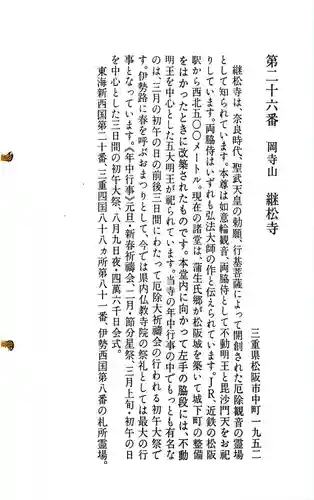 第二十六番　岡寺山　継松寺
三重県松阪市中町一九五二
継松寺は、奈良時代、聖武天皇の勅願、行基菩薩によって開創された厄除観音の霊場
として知られています。本尊は如意輪観音、両脇侍として不動明王と毘沙門天をお祀
りしています。両脇侍はいずれも弘法大師の作と伝えられています。JR、近鉄の松阪
駅から西北五〇〇メートル。現在の諸堂は、蒲生氏郷が松阪城を築いて城下町の整備
をはかったときに改築されたものです。本堂内に向かって左手の脇段には、不動
明王を中心とした五大明王が祀られています。当寺の年中行事の中でもっとも有名な
のは、三月の初午の日の前後三日間にわたって厄除大祈禱会の行われる初午大祭で
す。伊勢路に春を呼ぶおまつりとして、今では県内仏教寺院の祭礼としては最大の行
事となっています。《年中行事》元旦・新春祈禱会、二月・節分星祭、三月上旬・初午の日
を中心とした三日間の初午大祭、八月九日夜・四萬六千日会式。
東海新西国第二十番、三重四国八十八ヵ所第八十一番、伊勢西国第八番の札所霊場。